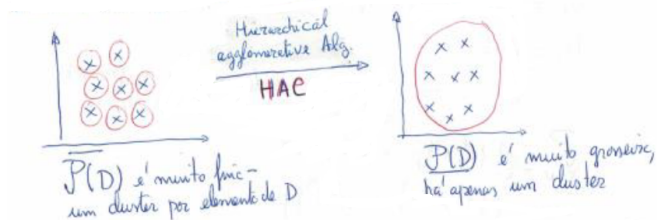 Hierarchical
agglomerative Alg.
HAC
P(D) é muito fino -
um cluster por elemento de D
P(D) é muito grosseiro,
há apenas um cluster